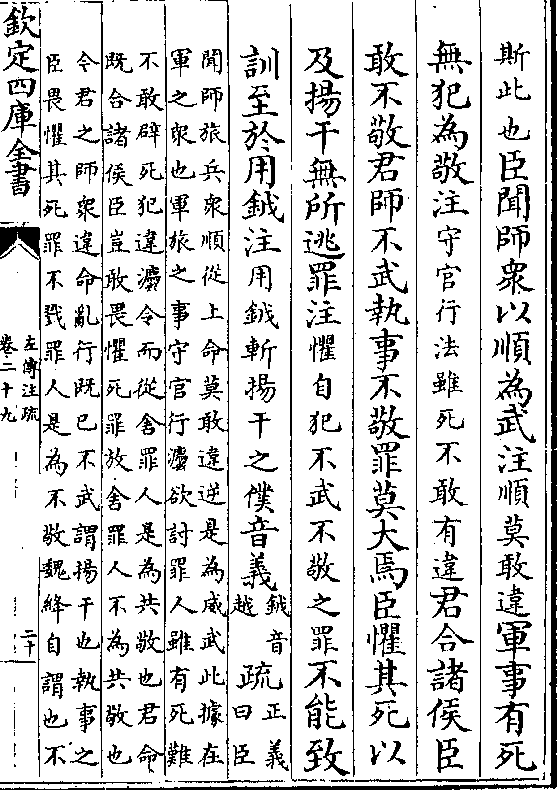 斯此也臣聞師衆以順為武注順莫敢違軍事有死
無犯為敬注守官行法雖死不敢有違君合諸侯臣
敢不敬君師不武執事不敬罪莫大焉臣懼其死以
及揚干無所逃罪注懼自犯不武不敬之罪不能致
訓至於用鉞注用鉞斬揚干之僕音義鉞音越疏正義曰臣
聞師旅兵衆順從上命莫敢違逆是為威武此據在
軍之衆也軍旅之事守官行灋欲討罪人雖有死難
不敢辟死犯違灋令而從舍罪人是為共敬也君命
既合諸侯臣豈敢畏懼死罪放舍罪人不為共敬也
令君之師衆違命亂行既已不武謂揚干也執事之
臣畏懼其死罪不戮罪人是為不敬魏絳自謂也不
欽定四庫全書
左傳注疏
卷二十九
二十